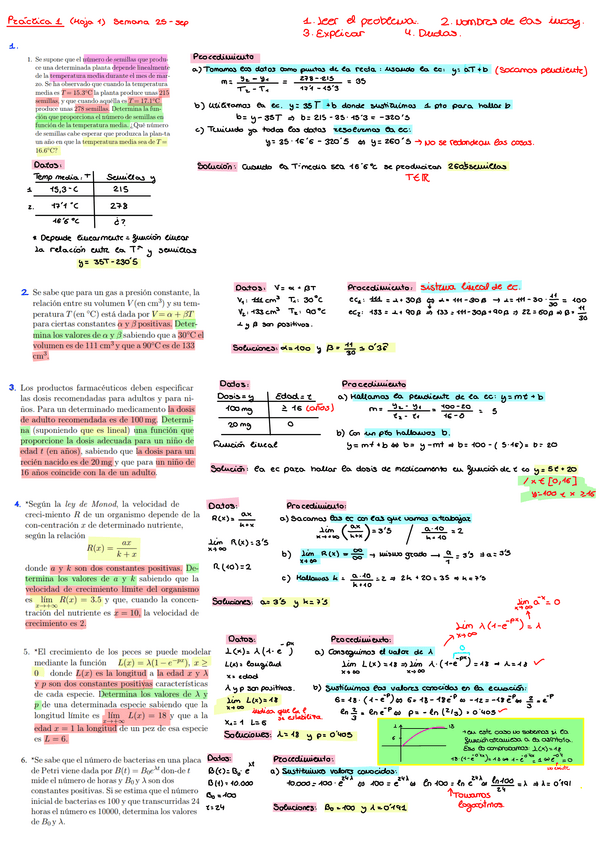 Práctica 1 (Hoja 1) Semana 25-sep
1. Leer el problema. 2. Nombres de las incog.
3. Explicar 4. Dudas.
1.
1. Se supone que el número de semillas que produ-
ce una determinada planta depende linealmente
de la temperatura media durante el mes de mar-
zo. Se ha observado que cuando la temperatura
media es T = 15.3°C la planta produce unas 215
semillas, y que cuando aquélla es T = 17.1°C
produce unas 278 semillas. Determina la fun-
ción que proporciona el número de semillas en
función de la temperatura media. ¿Qué número
de semillas cabe esperar que produzca la plan-ta
un año en que la temperatura media sea de T =
16.6°C?
Procedimiento
a) Tomamos los datos como puntos de la recta: usando la ec: y = aT + b (Sacamos pendiente)
y₂ - y₁ / T₂ - T₁ = 278 - 215 / 17'1 - 15'3 = 35
b) Utilizamos la ec. y = 35T + b donde sustituimos 1 pto para hallar b
b = y - 35T ⇒ b = 215 - 35·15'3 = -320'5
c) Teniendo ya todos los datos resolvemos la ec:
y = 35·16'6 - 320'5 ⇔ y = 260'5 → No se redondean las cosas.
Datos:
Temp media: T Semillas y
1. 15,3°C 215
2. 17'1°C 278
16'6°C ¿?
Solución: Cuando la T media sea 16'6°C se producirán 260'5 semillas
T∈ℝ
* Depende linealmente = función lineal
la relación entre la Tª y semillas
y = 35T - 230'5
2. Se sabe que para un gas a presión constante, la
relación entre su volumen V (en cm³) y su tem-
peratura T (en °C) está dada por V = α + βT
para ciertas constantes α y β positivas. Deter-
mina los valores de α y β sabiendo que a 30°C el
volumen es de 111 cm³ y que a 90°C es de 133
cm³.
Datos: V = α + βT
V₁: 111 cm³ T₁: 30°C
V₂: 133 cm³ T₂: 90°C
α y β son positivos.
Procedimiento: sistema lineal de ec.
ec₁: 111 = α + 30β ⇔ α = 111 - 30β → α = 111 - 30 · 11/30 = 100
ec₂: 133 = α + 90β ⇒ 133 = 111 - 30β + 90β ⇒ 22 = 60β ⇔ β = 11/30
Soluciones: α = 100 y β = 11/30 ≈ 0'36
3. Los productos farmacéuticos deben especificar
las dosis recomendadas para adultos y para ni-
ños. Para un determinado medicamento la dosis
de adulto recomendada es de 100 mg. Determi-
na (suponiendo que es lineal) una función que
proporcione la dosis adecuada para un niño de
edad t (en años), sabiendo que la dosis para un
recién nacido es de 20 mg y que para un niño de
16 años coincide con la de un adulto.
Datos:
Dosis = y Edad = t
100 mg ≥ 16 (años)
20 mg 0
Función lineal
Procedimiento
a) Hallamos la pendiente de la ec: y = mt + b
m = y₂ - y₁ / t₂ - t₁ = 100 - 20 / 16 - 0 = 5
b) Con un pto hallamos b.
y = mt + b ⇔ b = y - mt ⇒ b = 100 - (5·16) = b = 20
Solución: la ec para hallar la dosis de medicamento en función de t es y = 5t + 20
/ x ∈ [0,16]
y = 100 t ≥ 16
4. *Según la ley de Monod, la velocidad de
creci-miento R de un organismo depende de la
con-centración x de determinado nutriente,
según la relación
R(x) = ax / k + x
donde a y k son dos constantes positivas. De-
termina los valores de a y k sabiendo que la
velocidad de crecimiento límite del organismo
es lim x→+∞ R(x) = 3.5 y que, cuando la concen-
tración del nutriente es x = 10, la velocidad de
crecimiento es 2.
Datos:
R(x) = ax / k+x
lim x→+∞ R(x) = 3'5
R(10) = 2
Procedimiento:
a) Sacamos las ec con las que vamos a trabajar
lim x→+∞ (ax / k+x) = 3'5 / a·10 / k+10 = 2
b) lim x→+∞ R(x) = ∞/∞ → mismo grado → a/1 = 3'5 ⇒ a = 3'5
c) Hallamos k = a·10 / k+10 = 2 ⇒ 2k + 20 = 35 ⇒ k = 7'5
Soluciones: a = 3'5 y k = 7'5
lim x→∞ a⁻ˣ = 0
lim x→+∞ λ(1-e⁻ᵖˣ) = λ
5. *El crecimiento de los peces se puede modelar
mediante la función L(x) = λ(1 − e⁻ᵖˣ), x ≥
0 donde L(x) es la longitud a la edad x y λ
y p son dos constantes positivas características
de cada especie. Determina los valores de λ y
p de una determinada especie sabiendo que la
longitud límite es lim x→+∞ L(x) = 18 y que a la
edad x = 1 la longitud de un pez de esa especie
es L = 6.
Datos:
L(x) = λ(1-e⁻ᵖˣ)
L(x) = longitud
x = edad
λ y p son positivas.
lim L(x) = 18
indica que la l
se estabiliza
x₀ = 1 L = 6
Procedimiento:
a) Conseguimos el valor de λ
lim x→+∞ L(x) = 18 ⇒ lim x→+∞ λ·(1-e⁻ᵖˣ) = 18 ⇒ λ = 18 ✓
b) Sustituimos los valores conocidos en la ecuación:
6 = 18·(1-e⁻ᵖ) ⇔ 6 = 18 - 18e⁻ᵖ ⇔ -12 = -18e⁻ᵖ ⇔ 2/3 = e⁻ᵖ
ln 2/3 = ln e⁻ᵖ ⇔ p = -ln(2/3) = 0'405 ✓
Soluciones: λ = 18 y p = 0'405
6. *Se sabe que el número de bacterias en una placa
de Petri viene dada por B(t) = B₀e^λt donde t
mide el número de horas y B₀ y λ son dos
constantes positivas. Si se estima que el número
inicial de bacterias es 100 y que transcurridas 24
horas el número es 10000, determina los valores
de B₀ y λ.
Datos:
B(t) = B₀·e^λt
B(t) = 10.000
B₀ = 100
t = 24
Procedimiento:
a) Sustituimos valores conocidos:
10.000 = 100·e^24λ ⇔ 100 = e^24λ ⇔ ln 100 = ln e^24λ ⇔ ln100 / 24 = λ ⇒ λ = 0'191
Tomamos
logaritmos
Soluciones: B₀ = 100 y λ = 0'191